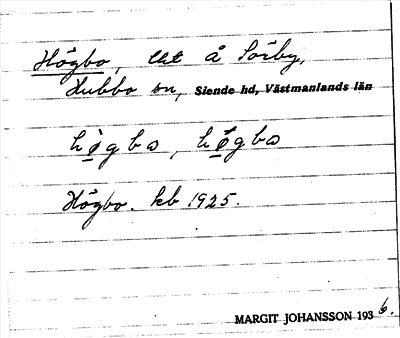 Högbo, lht å Sörby,
Hubbo sn, Siende hd, Västmanlands län
högbω, högbω
Högbo. kb 1925.
MARGIT JOHANSSON 1936.